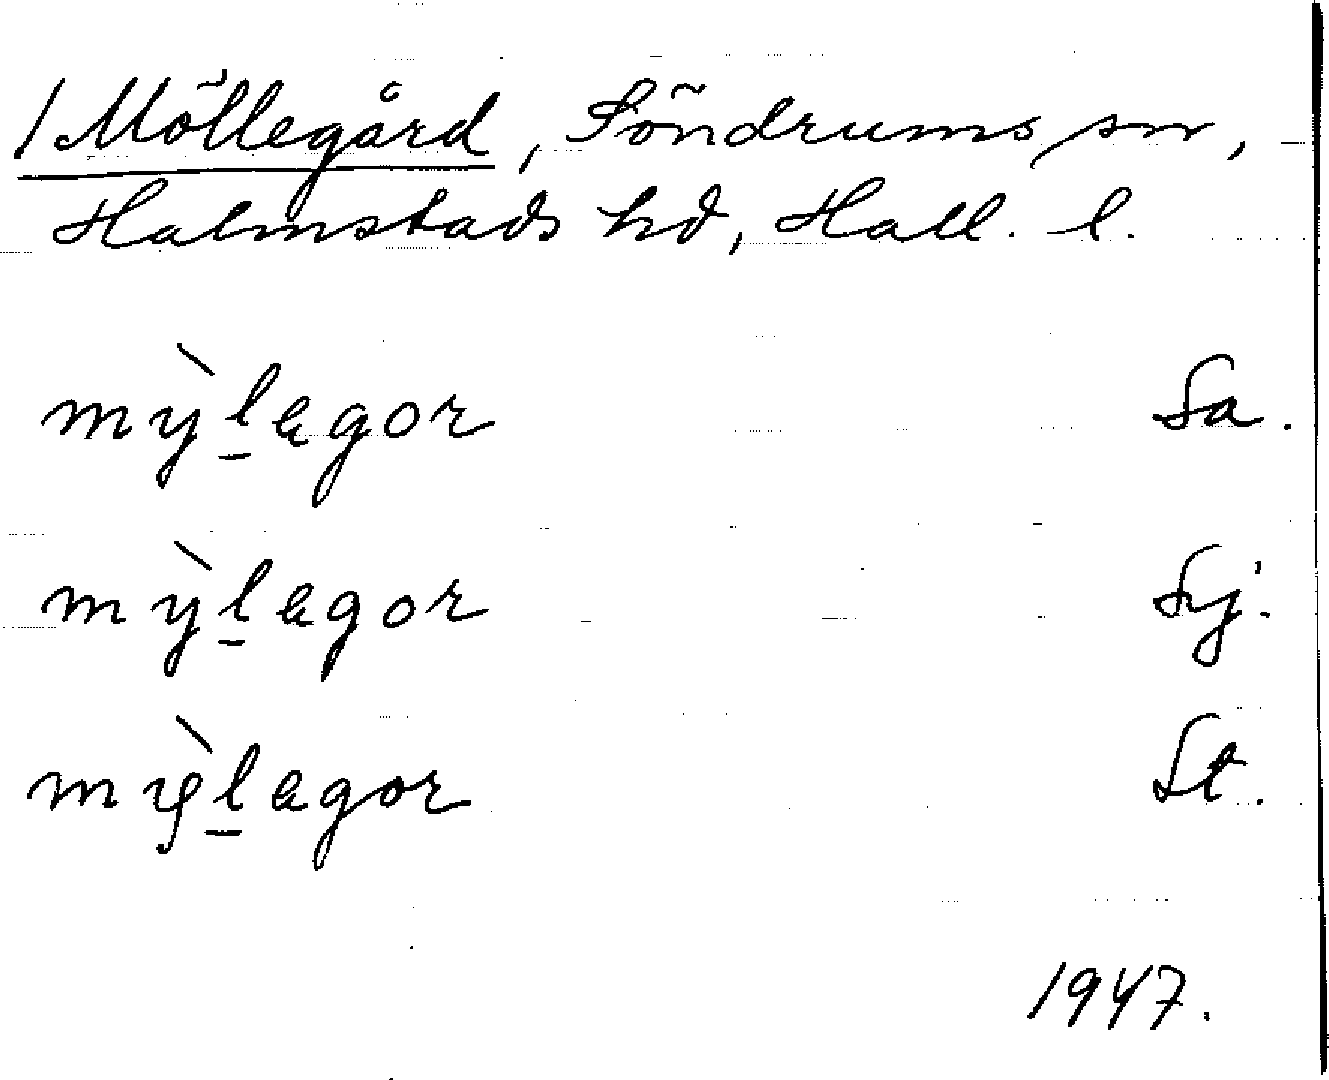 / Möllegård, Söndrums sn,
Halmstads hd, Hall. l.
mỳl̠agor Sa.
mỳl̠agor Sj.
mỳl̠agor St.
1947.